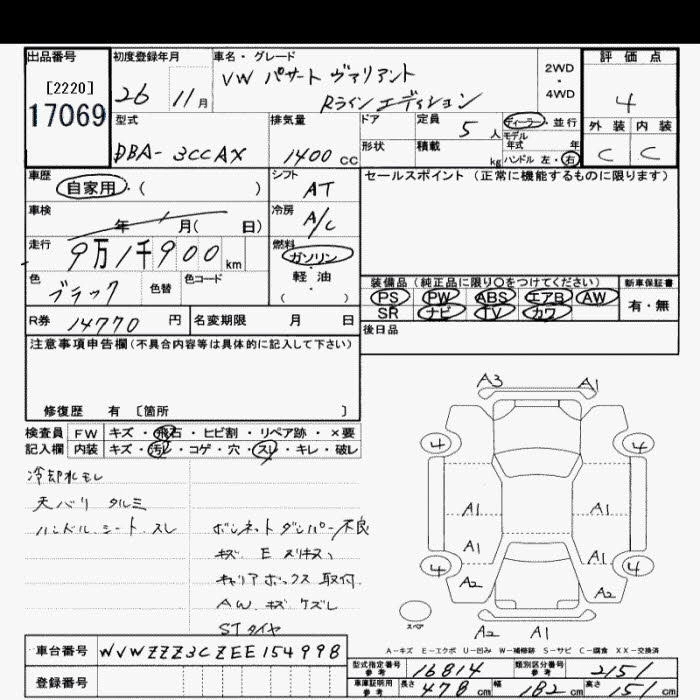 出品番号 [2220] 17069
初度登録年月 26 11月
車名・グレード VW パサート ヴァリアント
Rライン エディション
2WD ・ 4WD
評価点 4
外装 内装
C C
型式 DBA-3CCAX
排気量 1400 cc
ドア 定員 5人
形状 積載 kg
ディーラー・並行
モデル年式 年
ハンドル 左・右
車歴 自家用・( )
シフト AT
セールスポイント (正常に機能するものに限ります)
車検 年 月( 日)
冷房 A/C
走行 9万1千900 km
燃料 ガソリン・軽油 ( )
色 ブラック 色替 色コード
装備品 (純正品に限り○をつけてください)
PS PW ABS エアB AW
SR ナビ TV カワ
新車保証書 有・無
R券 14770 円 名変期限 月 日
後日品
注意事項申告欄(不具合内容等は具体的に記入して下さい)
修復歴 有 〔箇所 〕
検査員記入欄
FW キズ・飛石・ヒビ割・リペア跡・×要
内装 キズ・汚レ・コゲ・穴・スレ・キレ・破レ
冷却水モレ
天バリ タルミ
ハンドル、シート、スレ
ボンネットダンパー不良
キズ E ヌリキスッ
キャリアボックス取付
AW. キズ ケズレ
STタイヤ
A3 A1
4 4
A1 A1
A1 A1
4 4
A2 A2
スペア
A2 A1
A-キズ E-エクボ U-凹み W-補修跡 S-サビ C-腐食 XX-交換済
車台番号 WVWZZZ3CZEE154998
登録番号
型式指定番号 参考 16814 類別区分番号 参考 2151
車庫証明用 参考 長さ 478 cm 幅 182 cm 高さ 151 cm